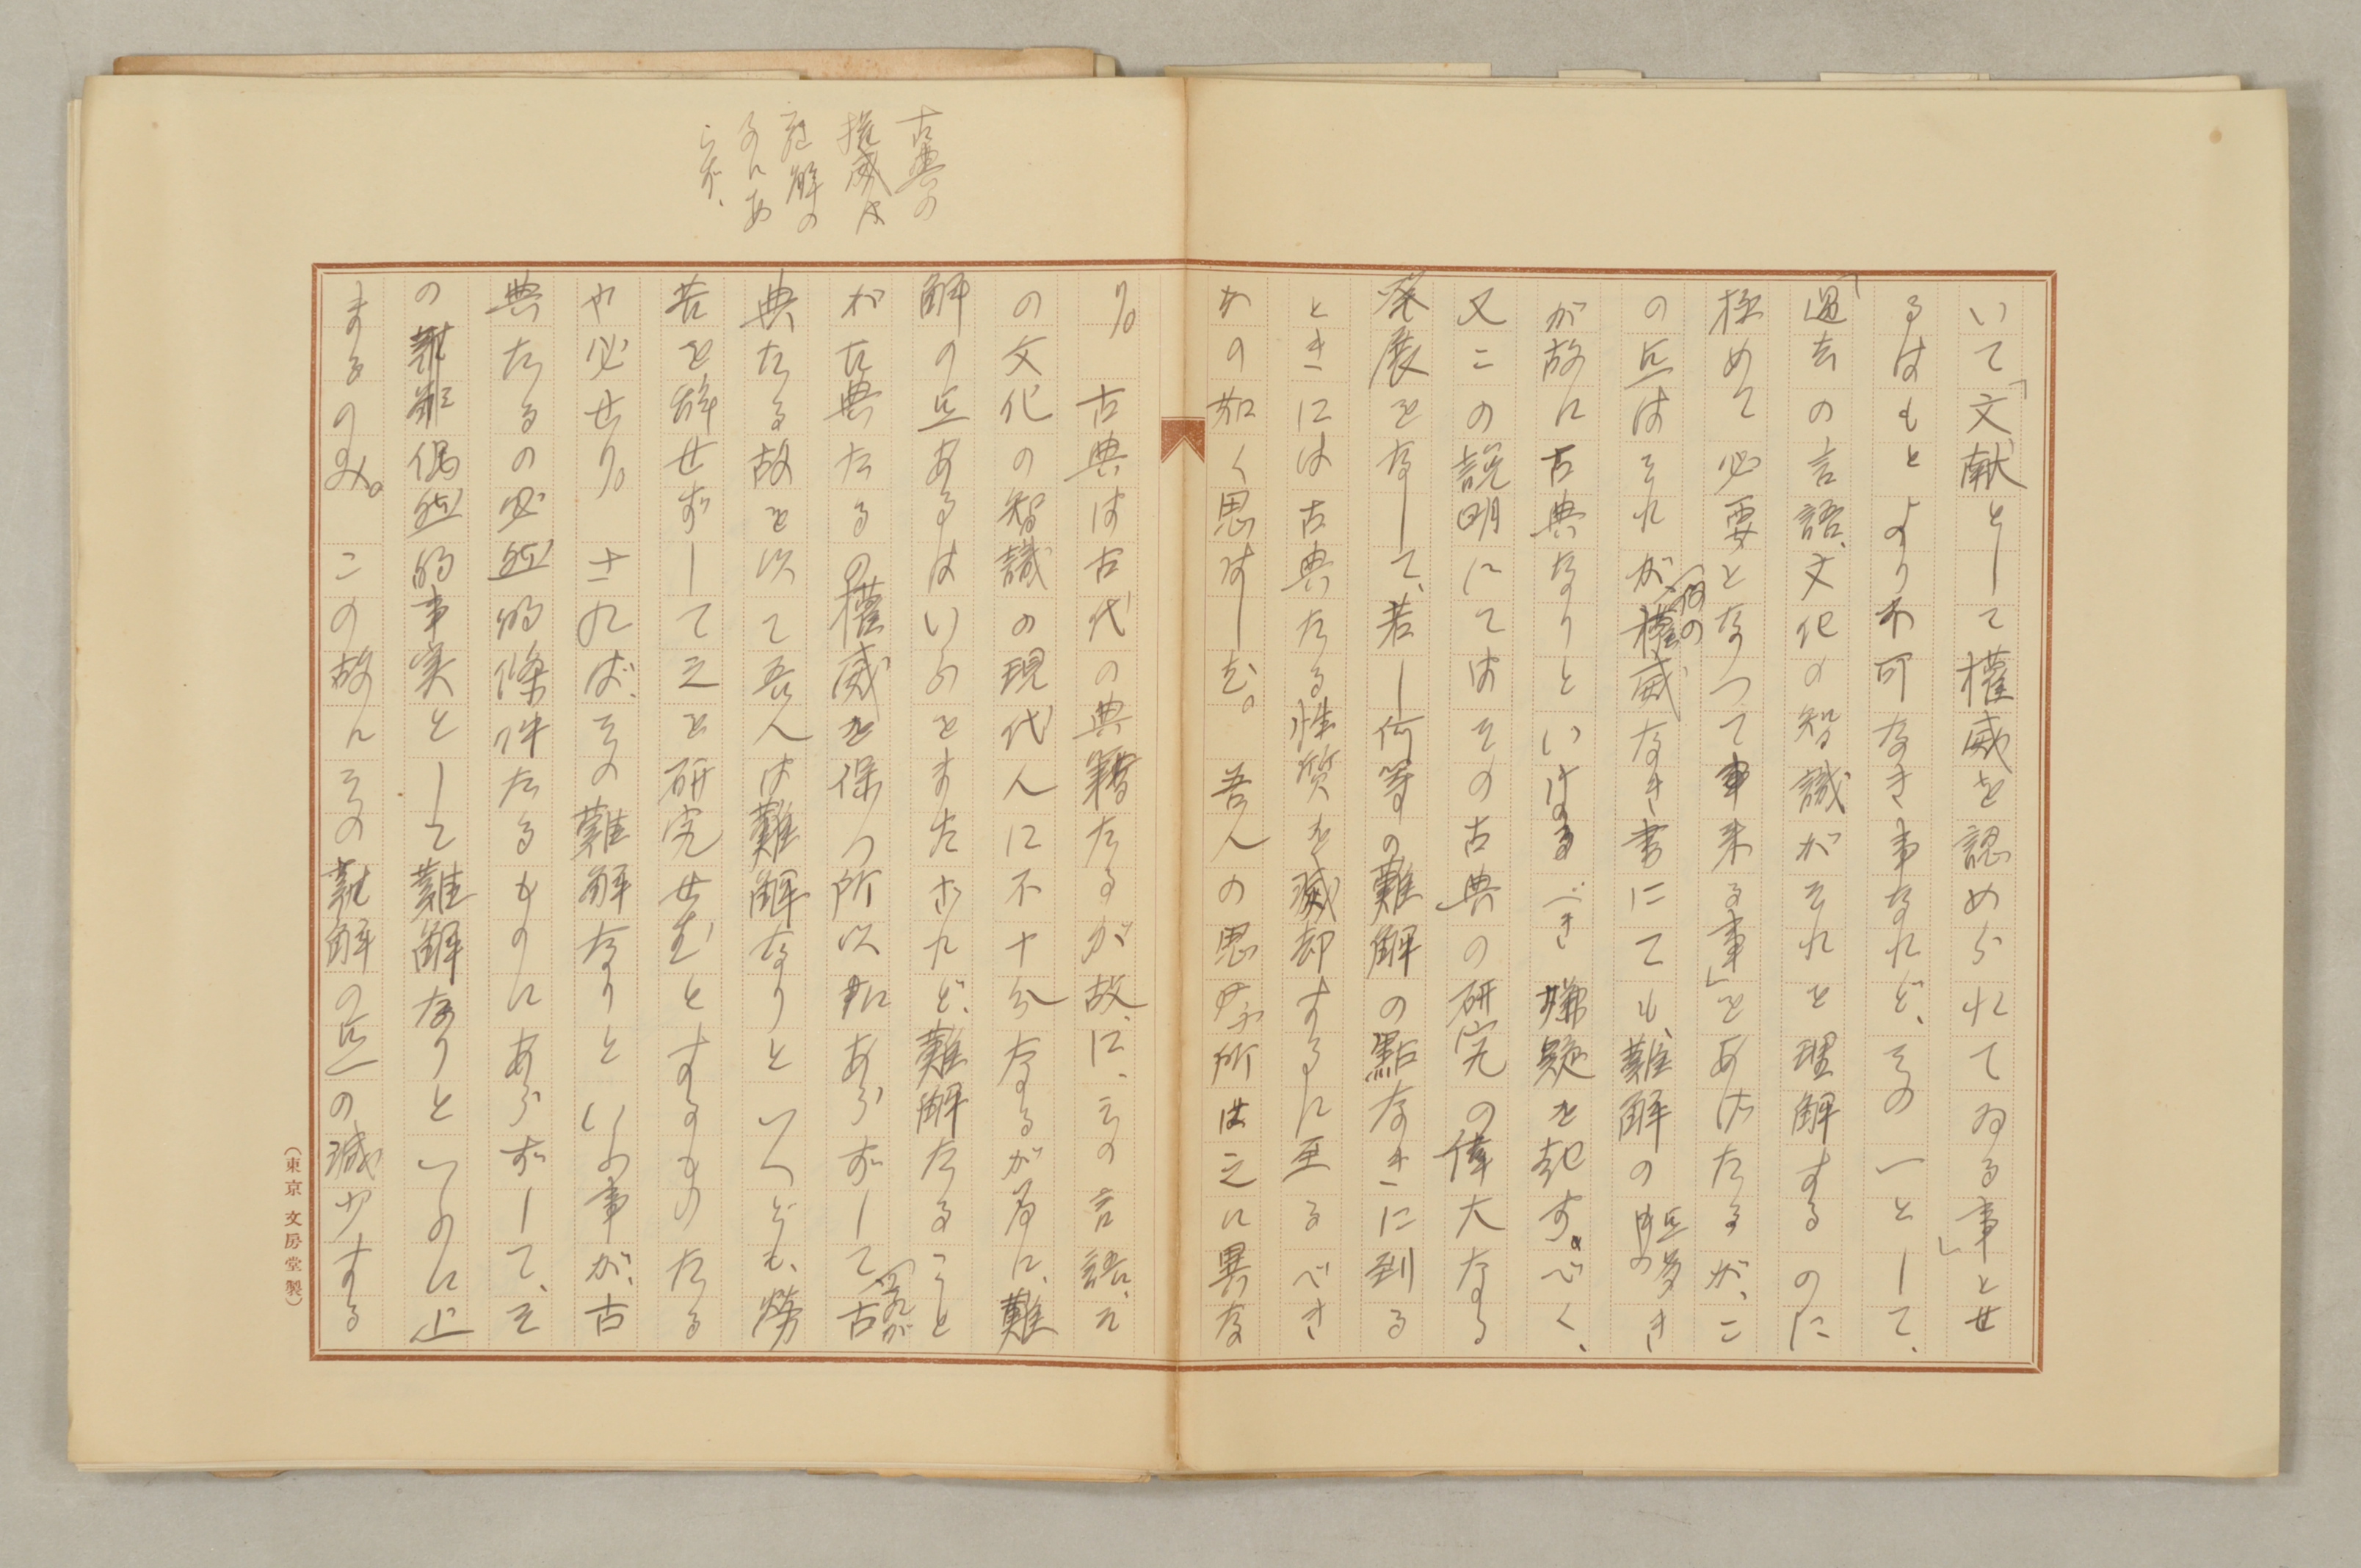 古典の
権威は
難解の
為にあ
らず、
いて「文献として権威を認められてゐる事」とせ
るはもとより不可なき事なれど、その一として、
「過去の言語、文化の智識がそれを理解するのに
極めて必要となつて来る事」とあげたるが、こ
の点はそれが何の権威なき書にても、難解の点多き
が故に古典なりといはるべき嫌疑を起すべく、
又この説明にてはその古典の研究の偉大なる
発展をなして、若し何等の難解の點なきに到る
ときには古典たる性質を滅却するに至るべき
かの如く思はしむ。 吾人の思ふ所は之に異な
り。 古典は古代の典籍たるが故に、その言語、そ
の文化の智識の現代人に不十分なるが為に、難
解の点あるはいふをまたざれど、難解たること
が古典たるの権威を保つ所以にあらずして、それが古
典たる故を以て吾人は難解なりといへども、労
苦を辞せずして之を研究せむとするものたる
や必せり。 されば、その難解なりといふ事が、古
典たるの必然的條件たるものにあらずして、そ
の難解偶然的事実として難解なりといふに止
まるのみ。 この故にその難解の点の減少する
(東京 文房堂製)